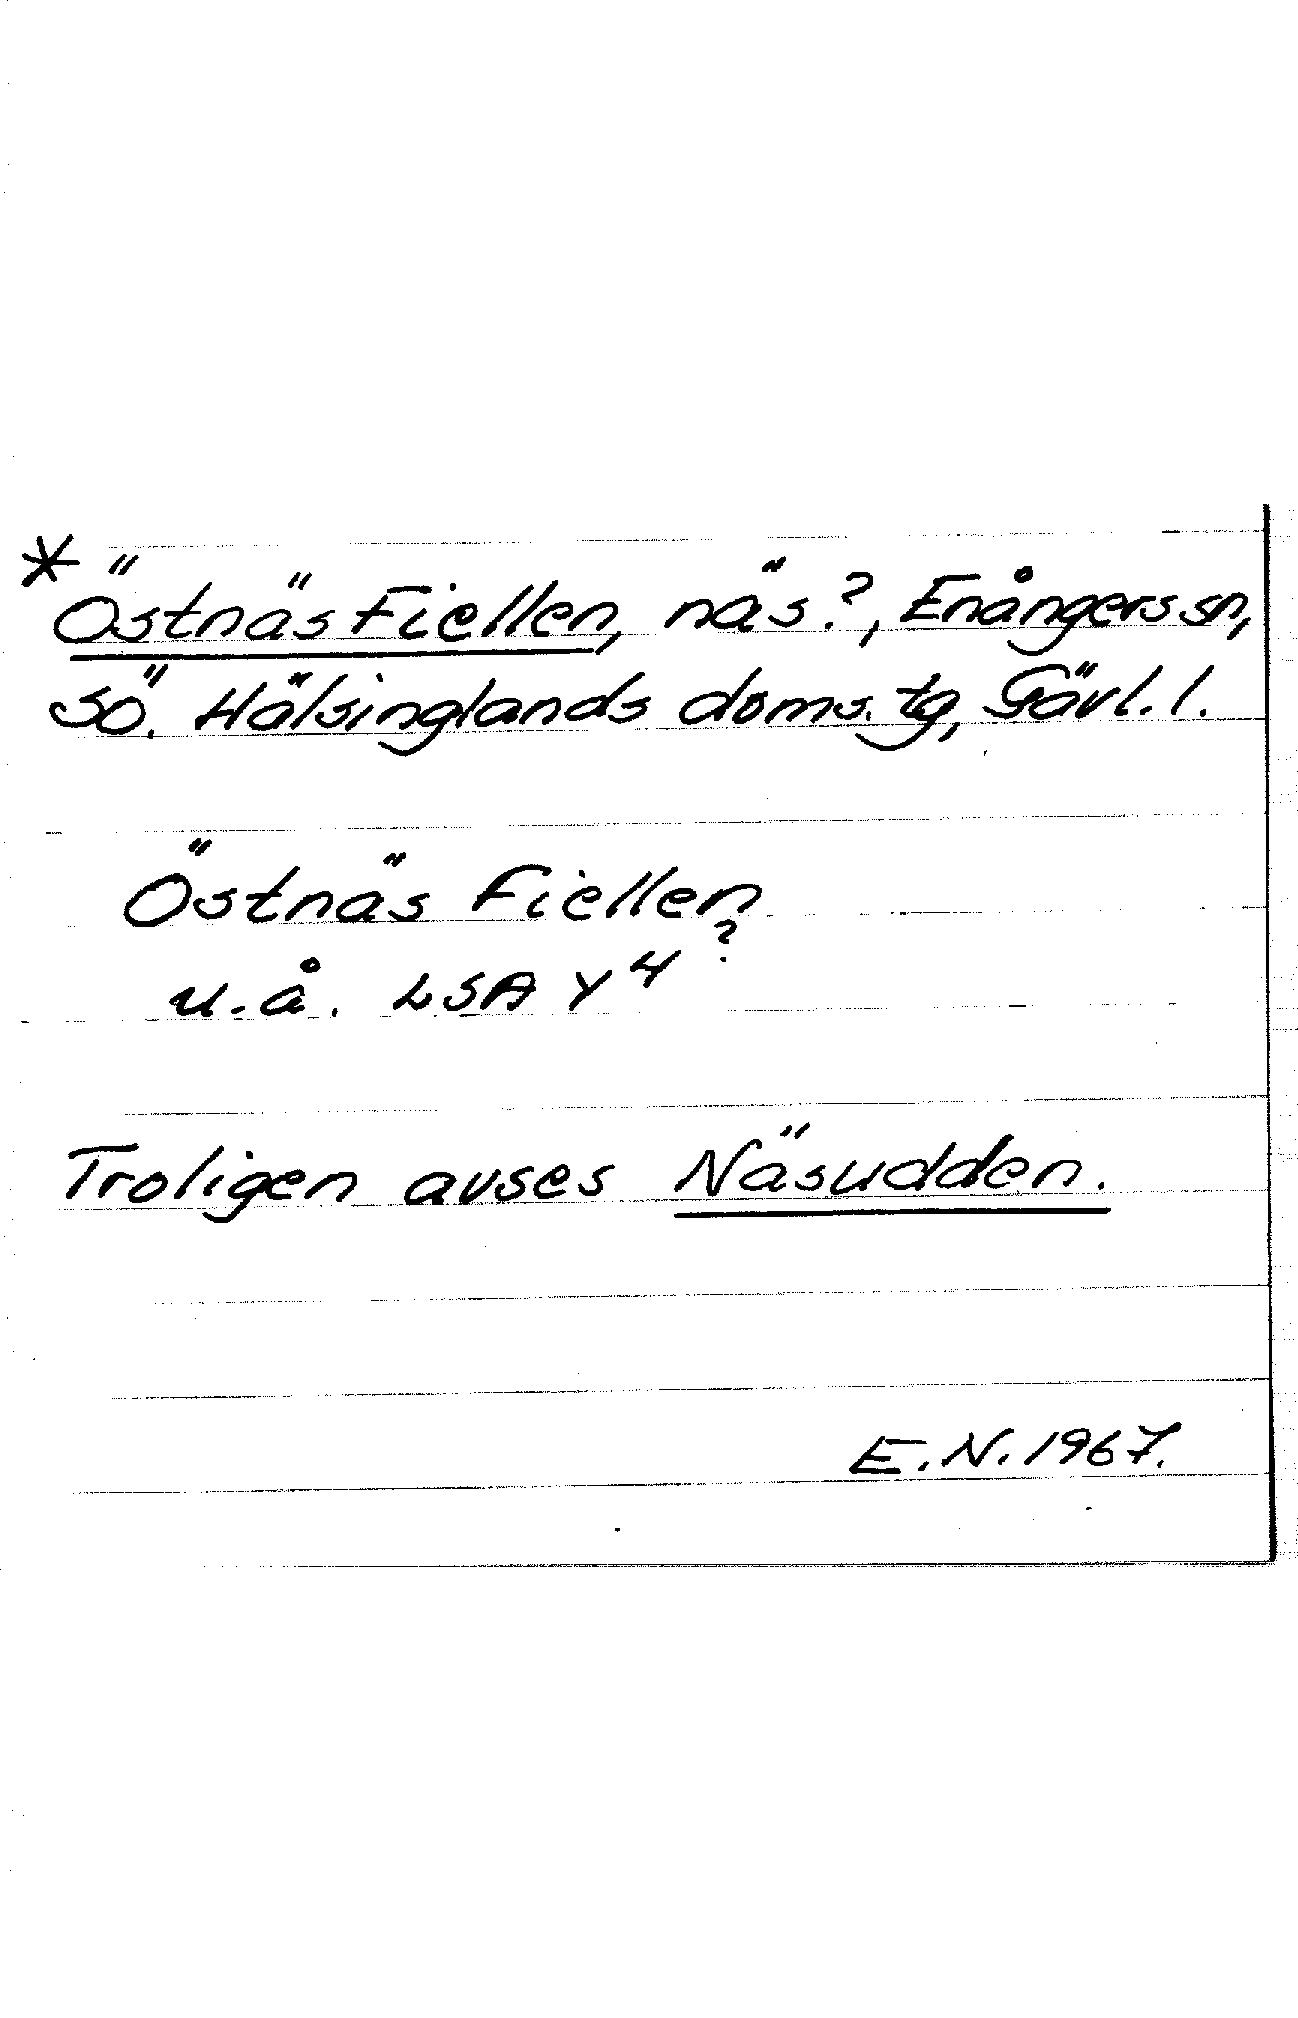 *Östnäs Fiellen, näs?, Enångers sn,
Sö. Hälsinglands doms. tg, Gävl. l.
Östnäs Fiellen
u.å. LSA Y 4 ?
Troligen avses Näsudden.
E. N. 1967.